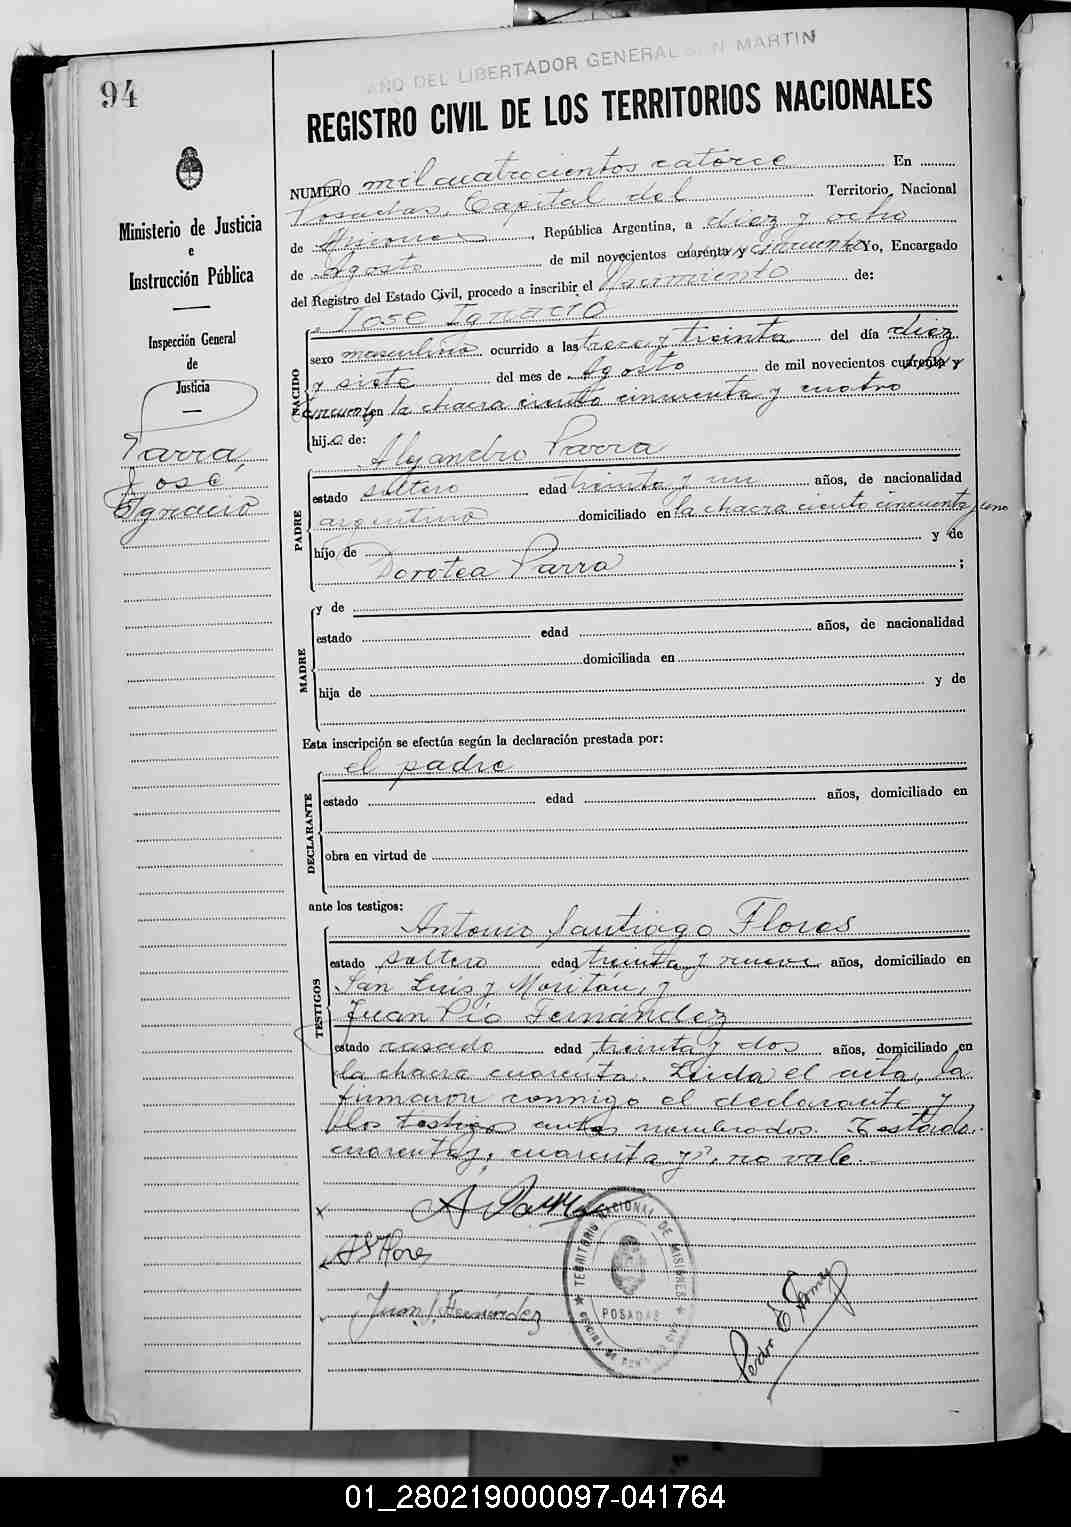 AÑO DEL LIBERTADOR GENERAL SAN MARTIN
94
REGISTRO CIVIL DE LOS TERRITORIOS NACIONALES
Ministerio de Justicia
e
Instrucción Pública
Inspección General
de
Justicia
Parra,
José
Ignacio
NUMERO mil cuatrocientos catorce En
Posadas, Capital del Territorio Nacional
de Misiones, República Argentina, a diez y ocho
de Agosto de mil novecientos cuarenta y cincuenta Yo, Encargado
del Registro del Estado Civil, procedo a inscribir el Nacimiento de:
José Ignacio
NACIDO
sexo masculino ocurrido a las trece y treinta del día diez
y siete del mes de Agosto de mil novecientos cuarenta y
cincuenta en la chacra ciento cincuenta y cuatro
hijo de: Alejandro Parra
PADRE
estado soltero edad treinta y un años, de nacionalidad
argentino domiciliado en la chacra ciento cincuenta y uno
hijo de y de
Dorotea Parra ;
MADRE
y de
estado edad años, de nacionalidad
domiciliada en
hija de y de
Esta inscripción se efectúa según la declaración prestada por:
el padre
DECLARANTE
estado edad años, domiciliado en
obra en virtud de
ante los testigos:
Antonio Santiago Flores
TESTIGOS
estado soltero edad treinta y nueve años, domiciliado en
San Luis y Moritán, y
Juan Pío Fernández
estado casado edad treinta y dos años, domiciliado en
la chacra cuarenta. Leida el acta, la
firmaron conmigo el declarante y
los testigos antes nombrados. Testado:
cuarenta y, cuarenta y", no vale.
A Parra
AS Flores
TERRITORIO NACIONAL DE MISIONES
POSADAS
Pedro E
01_280219000097-041764